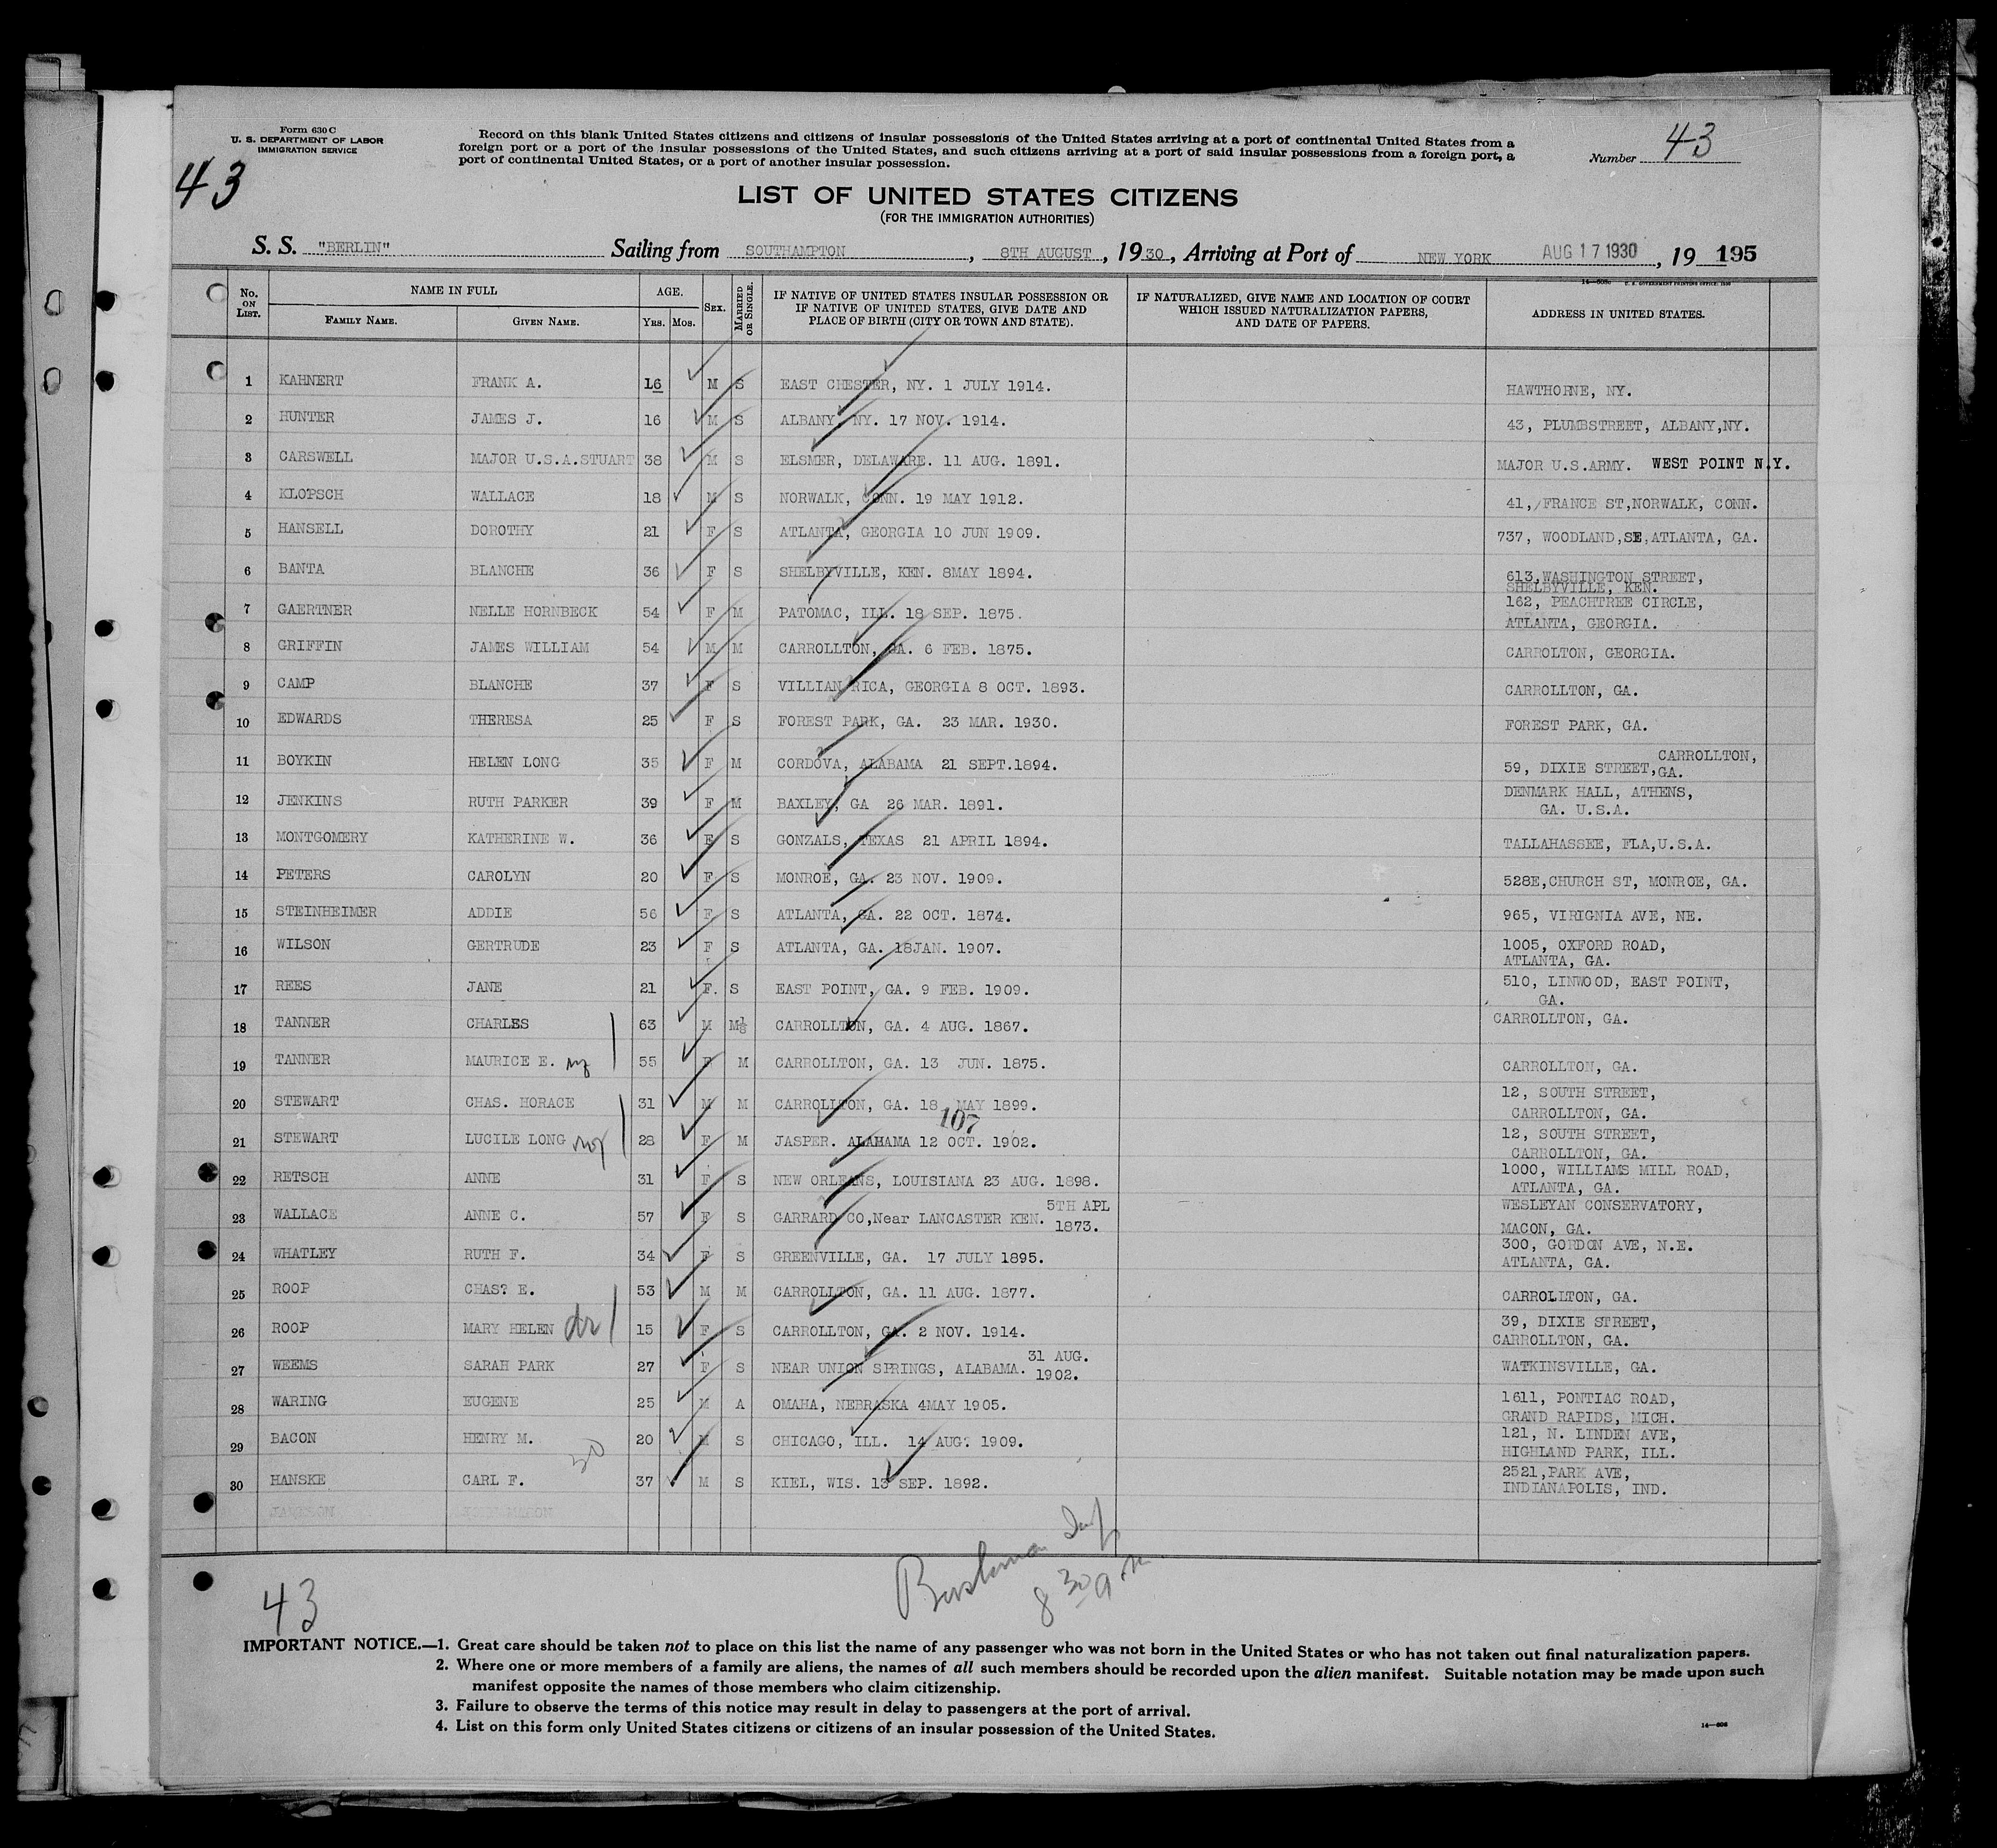 Form 630 C
U. S. DEPARTMENT OF LABOR
IMMIGRATION SERVICE
43
Record on this blank United States citizens and citizens of insular possessions of the United States arriving at a port of continental United States from a
foreign port or a port of the insular possessions of the United States, and such citizens arriving at a port of said insular possessions from a foreign port, a
port of continental United States, or a port of another insular possession.
Number 43
LIST OF UNITED STATES CITIZENS
(FOR THE IMMIGRATION AUTHORITIES)
S. S. "BERLIN" Sailing from SOUTHAMPTON, 8TH AUGUST, 1930, Arriving at Port of NEW YORK AUG 17 1930, 19 195
No. ON LIST. NAME IN FULL FAMILY NAME. GIVEN NAME. AGE. YRS. MOS. SEX. MARRIED OR SINGLE. IF NATIVE OF UNITED STATES INSULAR POSSESSION OR IF NATIVE OF UNITED STATES, GIVE DATE AND PLACE OF BIRTH (CITY OR TOWN AND STATE). IF NATURALIZED, GIVE NAME AND LOCATION OF COURT WHICH ISSUED NATURALIZATION PAPERS, AND DATE OF PAPERS. ADDRESS IN UNITED STATES.
1 KAHNERT FRANK A. 16 M S EAST CHESTER, NY. 1 JULY 1914. HAWTHORNE, NY.
2 HUNTER JAMES J. 16 M S ALBANY, NY. 17 NOV. 1914. 43, PLUMBSTREET, ALBANY,NY.
3 CARSWELL MAJOR U.S.A.STUART 38 M S ELSMER, DELAWARE. 11 AUG. 1891. MAJOR U.S.ARMY. WEST POINT N.Y.
4 KLOPSCH WALLACE 18 M S NORWALK, CONN. 19 MAY 1912. 41,/FRANCE ST,NORWALK, CONN.
5 HANSELL DOROTHY 21 F S ATLANTA, GEORGIA 10 JUN 1909. 737, WOODLAND,SE,ATLANTA, GA.
6 BANTA BLANCHE 36 F S SHELBYVILLE, KEN. 8MAY 1894. 613,WASHINGTON STREET,
SHELBYVILLE, KEN.
7 GAERTNER NELLE HORNBECK 54 F M PATOMAC, ILL. 18 SEP. 1875. 162, PEACHTREE CIRCLE,
ATLANTA, GEORGIA.
8 GRIFFIN JAMES WILLIAM 54 M M CARROLLTON, GA. 6 FEB. 1875. CARROLTON, GEORGIA.
9 CAMP BLANCHE 37 F S VILLIAN RICA, GEORGIA 8 OCT. 1893. CARROLLTON, GA.
10 EDWARDS THERESA 25 F S FOREST PARK, GA. 23 MAR. 1930. FOREST PARK, GA.
11 BOYKIN HELEN LONG 35 F M CORDOVA, ALABAMA 21 SEPT.1894. 59, DIXIE STREET, CARROLLTON,
GA.
12 JENKINS RUTH PARKER 39 F M BAXLEY, GA 26 MAR. 1891. DENMARK HALL, ATHENS,
GA. U.S.A.
13 MONTGOMERY KATHERINE W. 36 F S GONZALS, TEXAS 21 APRIL 1894. TALLAHASSEE, FLA,U.S.A.
14 PETERS CAROLYN 20 F S MONROE, GA. 23 NOV. 1909. 528E,CHURCH ST, MONROE, GA.
15 STEINHEIMER ADDIE 56 F S ATLANTA, GA. 22 OCT. 1874. 965, VIRIGNIA AVE, NE.
16 WILSON GERTRUDE 23 F S ATLANTA, GA. 18JAN. 1907. 1005, OXFORD ROAD,
ATLANTA, GA.
17 REES JANE 21 F. S EAST POINT, GA. 9 FEB. 1909. 510, LINWOOD, EAST POINT,
GA.
18 TANNER CHARLES 63 M M CARROLLTON, GA. 4 AUG. 1867. CARROLLTON, GA.
19 TANNER MAURICE E. 55 F M CARROLLTON, GA. 13 JUN. 1875. CARROLLTON, GA.
20 STEWART CHAS. HORACE 31 M M CARROLLTON, GA. 18 MAY 1899. 12, SOUTH STREET,
CARROLLTON, GA.
107
21 STEWART LUCILE LONG 28 F M JASPER. ALAHAMA 12 OCT. 1902. 12, SOUTH STREET,
CARROLLTON, GA.
22 RETSCH ANNE 31 F S NEW ORLEANS, LOUISIANA 23 AUG. 1898. 1000, WILLIAMS MILL ROAD,
ATLANTA, GA.
23 WALLACE ANNE C. 57 F S GARRARD CO,Near LANCASTER KEN. 5TH APL 1873. WESLEYAN CONSERVATORY,
MACON, GA.
24 WHATLEY RUTH F. 34 F S GREENVILLE, GA. 17 JULY 1895. 300, GORDON AVE, N.E.
ATLANTA, GA.
25 ROOP CHAS? E. 53 M M CARROLLTON, GA. 11 AUG. 1877. CARROLLTON, GA.
26 ROOP MARY HELEN dr 15 F S CARROLLTON, GA. 2 NOV. 1914. 39, DIXIE STREET,
CARROLLTON, GA.
27 WEEMS SARAH PARK 27 F S NEAR UNION SPRINGS, ALABAMA. 31 AUG. 1902. WATKINSVILLE, GA.
28 WARING EUGENE 25 M A OMAHA, NEBRASKA 4MAY 1905. 1611, PONTIAC ROAD,
GRAND RAPIDS, MICH.
29 BACON HENRY M. 20 M S CHICAGO, ILL. 14 AUG? 1909. 121, N. LINDEN AVE,
HIGHLAND PARK, ILL.
30
30 HANSKE CARL F. 37 M S KIEL, WIS. 13 SEP. 1892. 2521,PARK AVE,
INDIANAPOLIS, IND.
8 30 a.m
43
IMPORTANT NOTICE.—1. Great care should be taken not to place on this list the name of any passenger who was not born in the United States or who has not taken out final naturalization papers.
2. Where one or more members of a family are aliens, the names of all such members should be recorded upon the alien manifest. Suitable notation may be made upon such
manifest opposite the names of those members who claim citizenship.
3. Failure to observe the terms of this notice may result in delay to passengers at the port of arrival.
4. List on this form only United States citizens or citizens of an insular possession of the United States.